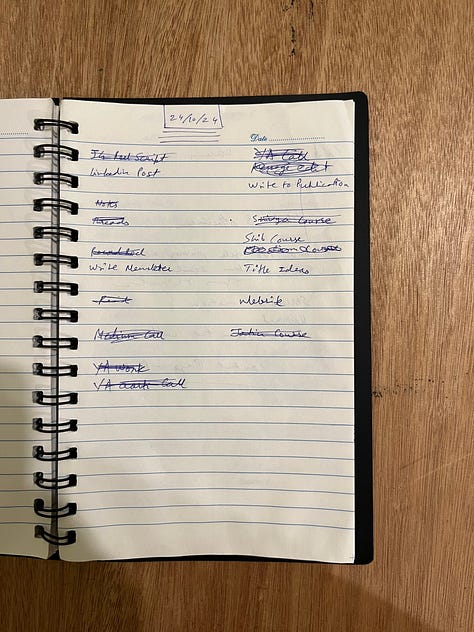 24/10/24
Date
IG Reel Script
Linkedin Post
Notes
Threads
Write Newsletter
Read
Medium Call
VA work
VA Call
VA Call
Write to Publication
Course
Skib Course
Title Ideas
Website
Course